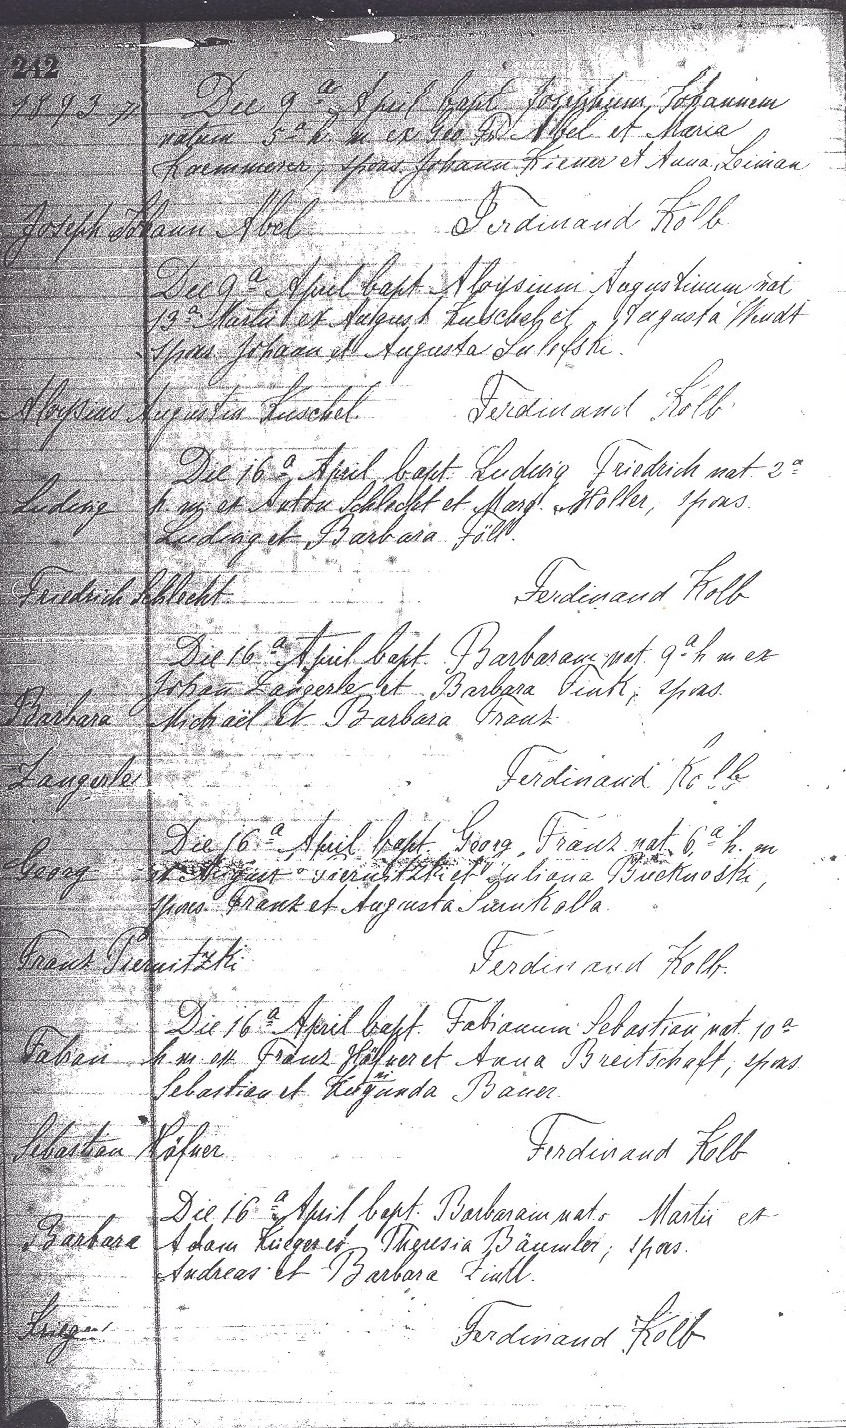 242
1893
Die 9ª April bapt Josephum Johannem
natum 5ª h. m ex Geo Abel et Maria
Kaemmerer, spons Johann Kiener et Anna Leiman
Joseph Johann Abel Ferdinand Kolb
Die 9ª April bapt Aloysium Augustinum nat
13ª Martii ex August Kuschel et Augusta Wendt
spons Johann et Augusta
Aloysius Augustin Kuschel. Ferdinand Kolb
Die 16ª April bapt. Ludwig Friedrich nat. 2ª
Ludwig h. m. ex Anton Schlecht et Marg. Holler, spons.
Ludwig et Barbara Föll.
Friedrich Schlecht. Ferdinand Kolb
Die 16ª April bapt. Barbaram nat. 9ª h m ex
Johan̄ Zangerle et Barbara Fink, spons.
Barbara Michaël et Barbara Franz
Zangerle Ferdinand Kolb
Die 16ª April bapt. Georg Franz nat. 6ª h. m
Georg ex August Piernitzki et Juliana
spons. Franz et Augusta
Franz Piernitzki Ferdinand Kolb.
Die 16ª April bapt. Fabianum Sebastian nat. 10ª
Fabian h m ex Franz Höfner et Anna Breitschaft, spons.
Sebastian et Kunigunda Bauer.
Sebastian Höfner Ferdinand Kolb
Die 16ª April bapt. Barbaram nat. Martii ex
Barbara Adam Krieger et Theresia Bäumler, spons.
Andreas et Barbara Zintl.
Krieger Ferdinand Kolb